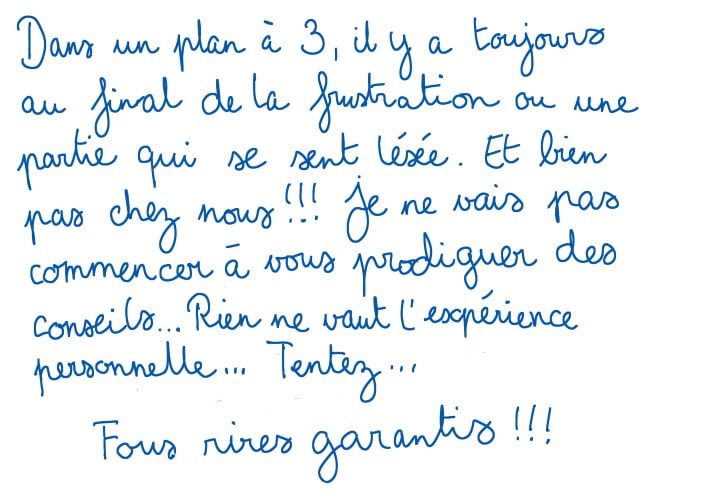 Dans un plan à 3, il y a toujours
au final de la frustration ou une
partie qui se sent lésée. Et bien
pas chez nous!!! Je ne vais pas
commencer à vous prodiguer des
conseils... Rien ne vaut l'expérience
personnelle... Tentez...
Fous rires garantis!!!